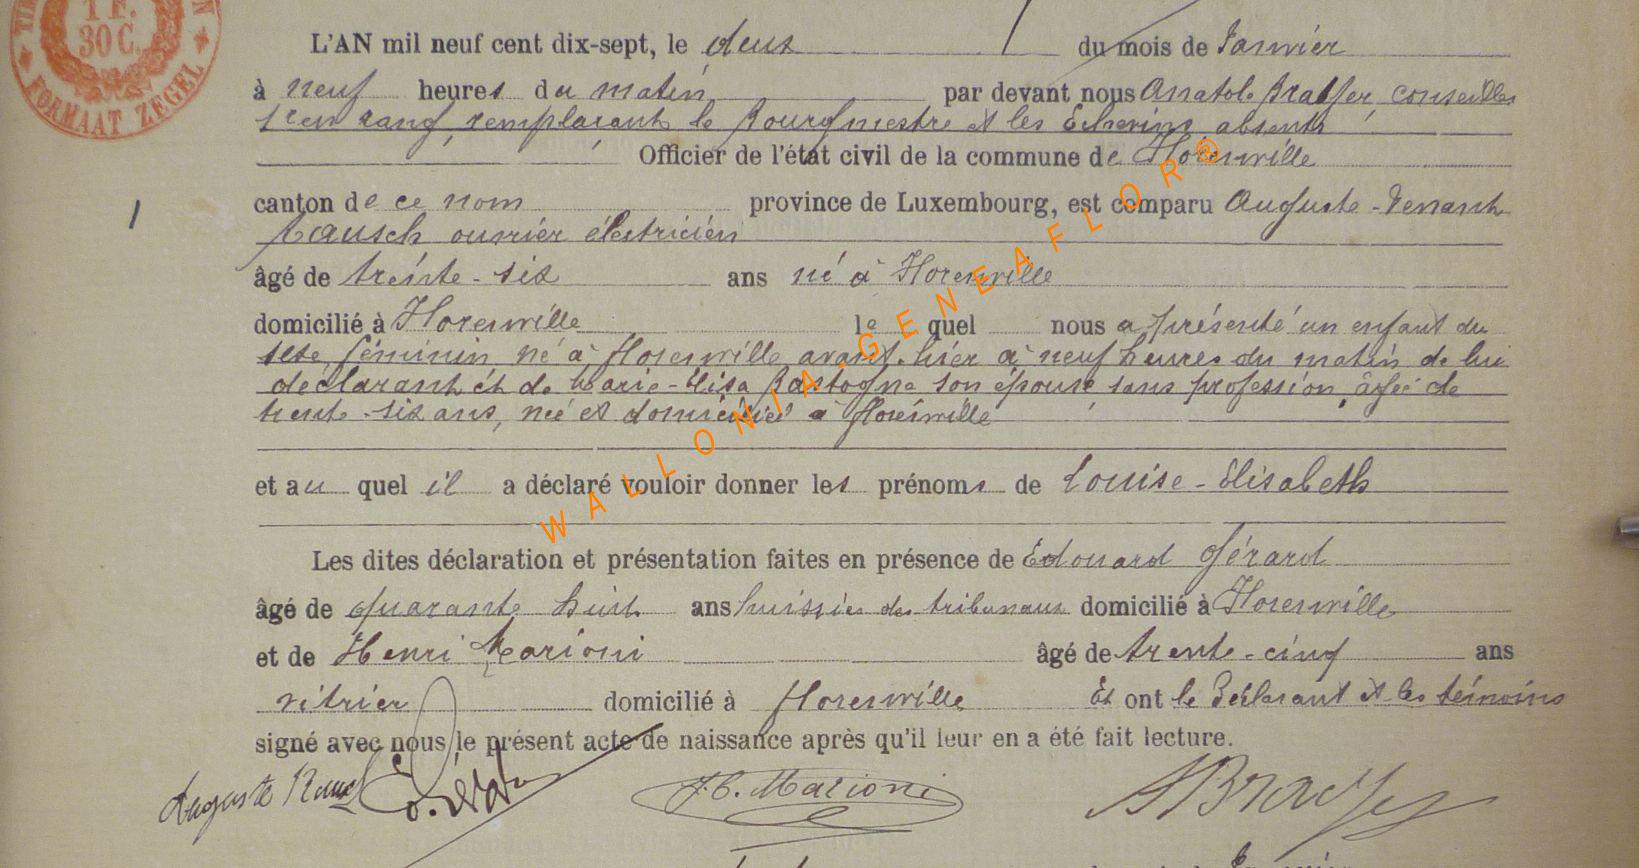 1 F.
30 C.
FORMAAT ZEGEL
L'AN mil neuf cent dix-sept, le deux du mois de Janvier
à neuf heures du matin par devant nous Anatole Brasfer, conseiller
1er en rang, remplaçant le Bourgmestre et les Echevins absents
Officier de l'état civil de la commune de Florenville
1
canton de ce nom province de Luxembourg, est comparu Auguste-Venant
Rausch ouvrier électricien
âgé de trente-six ans né à Florenville
domicilié à Florenville lequel nous a présenté un enfant du
sexe féminin, né à Florenville avant-hier à neuf heures du matin de lui
déclarant et de Marie-Elisa Bastogne son épouse, sans profession, âgée de
trente-six ans, née et domiciliée à Florenville
et au quel il a déclaré vouloir donner les prénoms de Louise-Elisabeth
Les dites déclaration et présentation faites en présence de Edouard Gérard
âgé de quarante huit ans huissier des tribunaux domicilié à Florenville
et de Henri Marioni âgé de trente-cinq ans
vitrier domicilié à Florenville Et ont le déclarant et les témoins
signé avec nous le présent acte de naissance après qu'il leur en a été fait lecture.
Auguste Rausch H. Marioni
WALLONIA-GENEAFLOR®